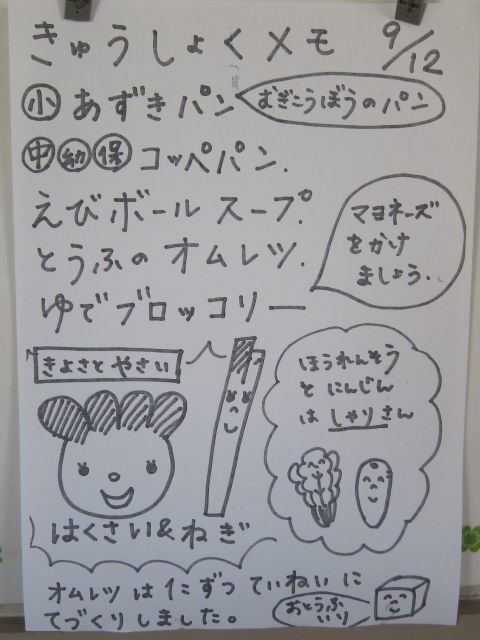 きゅうしょくメモ 9/12
小 あずきパン むぎこうぼうのパン
中 幼 保 コッペパン.
えびボールスープ.
とうふのオムレツ.
マヨネーズ
をかけ
ましょう.
ゆでブロッコリー
きよさとやさい
ほうれんそう
とにんじん
はしゃりさん
はくさい&ねぎ
オムレツは1こずつていねいに
てづくりしました。
おとうふ
いり